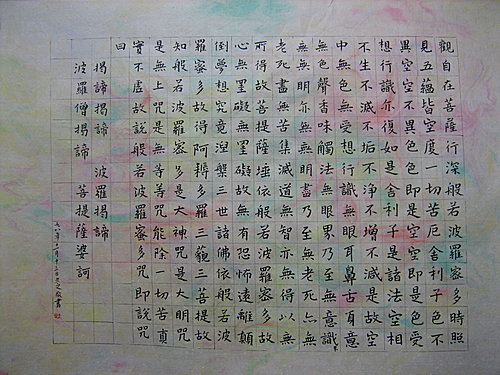 觀自在菩薩行深般若波羅蜜多時照
見五蘊皆空度一切苦厄舍利子色不
異空空不異色色即是空空即是色受
想行識亦復如是舍利子是諸法空相
不生不滅不垢不淨不增不減是故空
中無色無受想行識無眼耳鼻舌身意
無色聲香味觸法無眼界乃至無意識界
無無明亦無無明盡乃至無老死亦無
老死盡無苦集滅道無智亦無得以無
所得故菩提薩埵依般若波羅蜜多故
心無罣礙無罣礙故無有恐怖遠離顛
倒夢想究竟涅槃三世諸佛依般若波
羅蜜多故得阿耨多羅三藐三菩提故
知般若波羅蜜多是大神咒是大明咒
是無上咒是無等等咒能除一切苦真
實不虛故說般若波羅蜜多咒即說咒
曰
揭諦揭諦 波羅揭諦
波羅僧揭諦 菩提薩婆訶